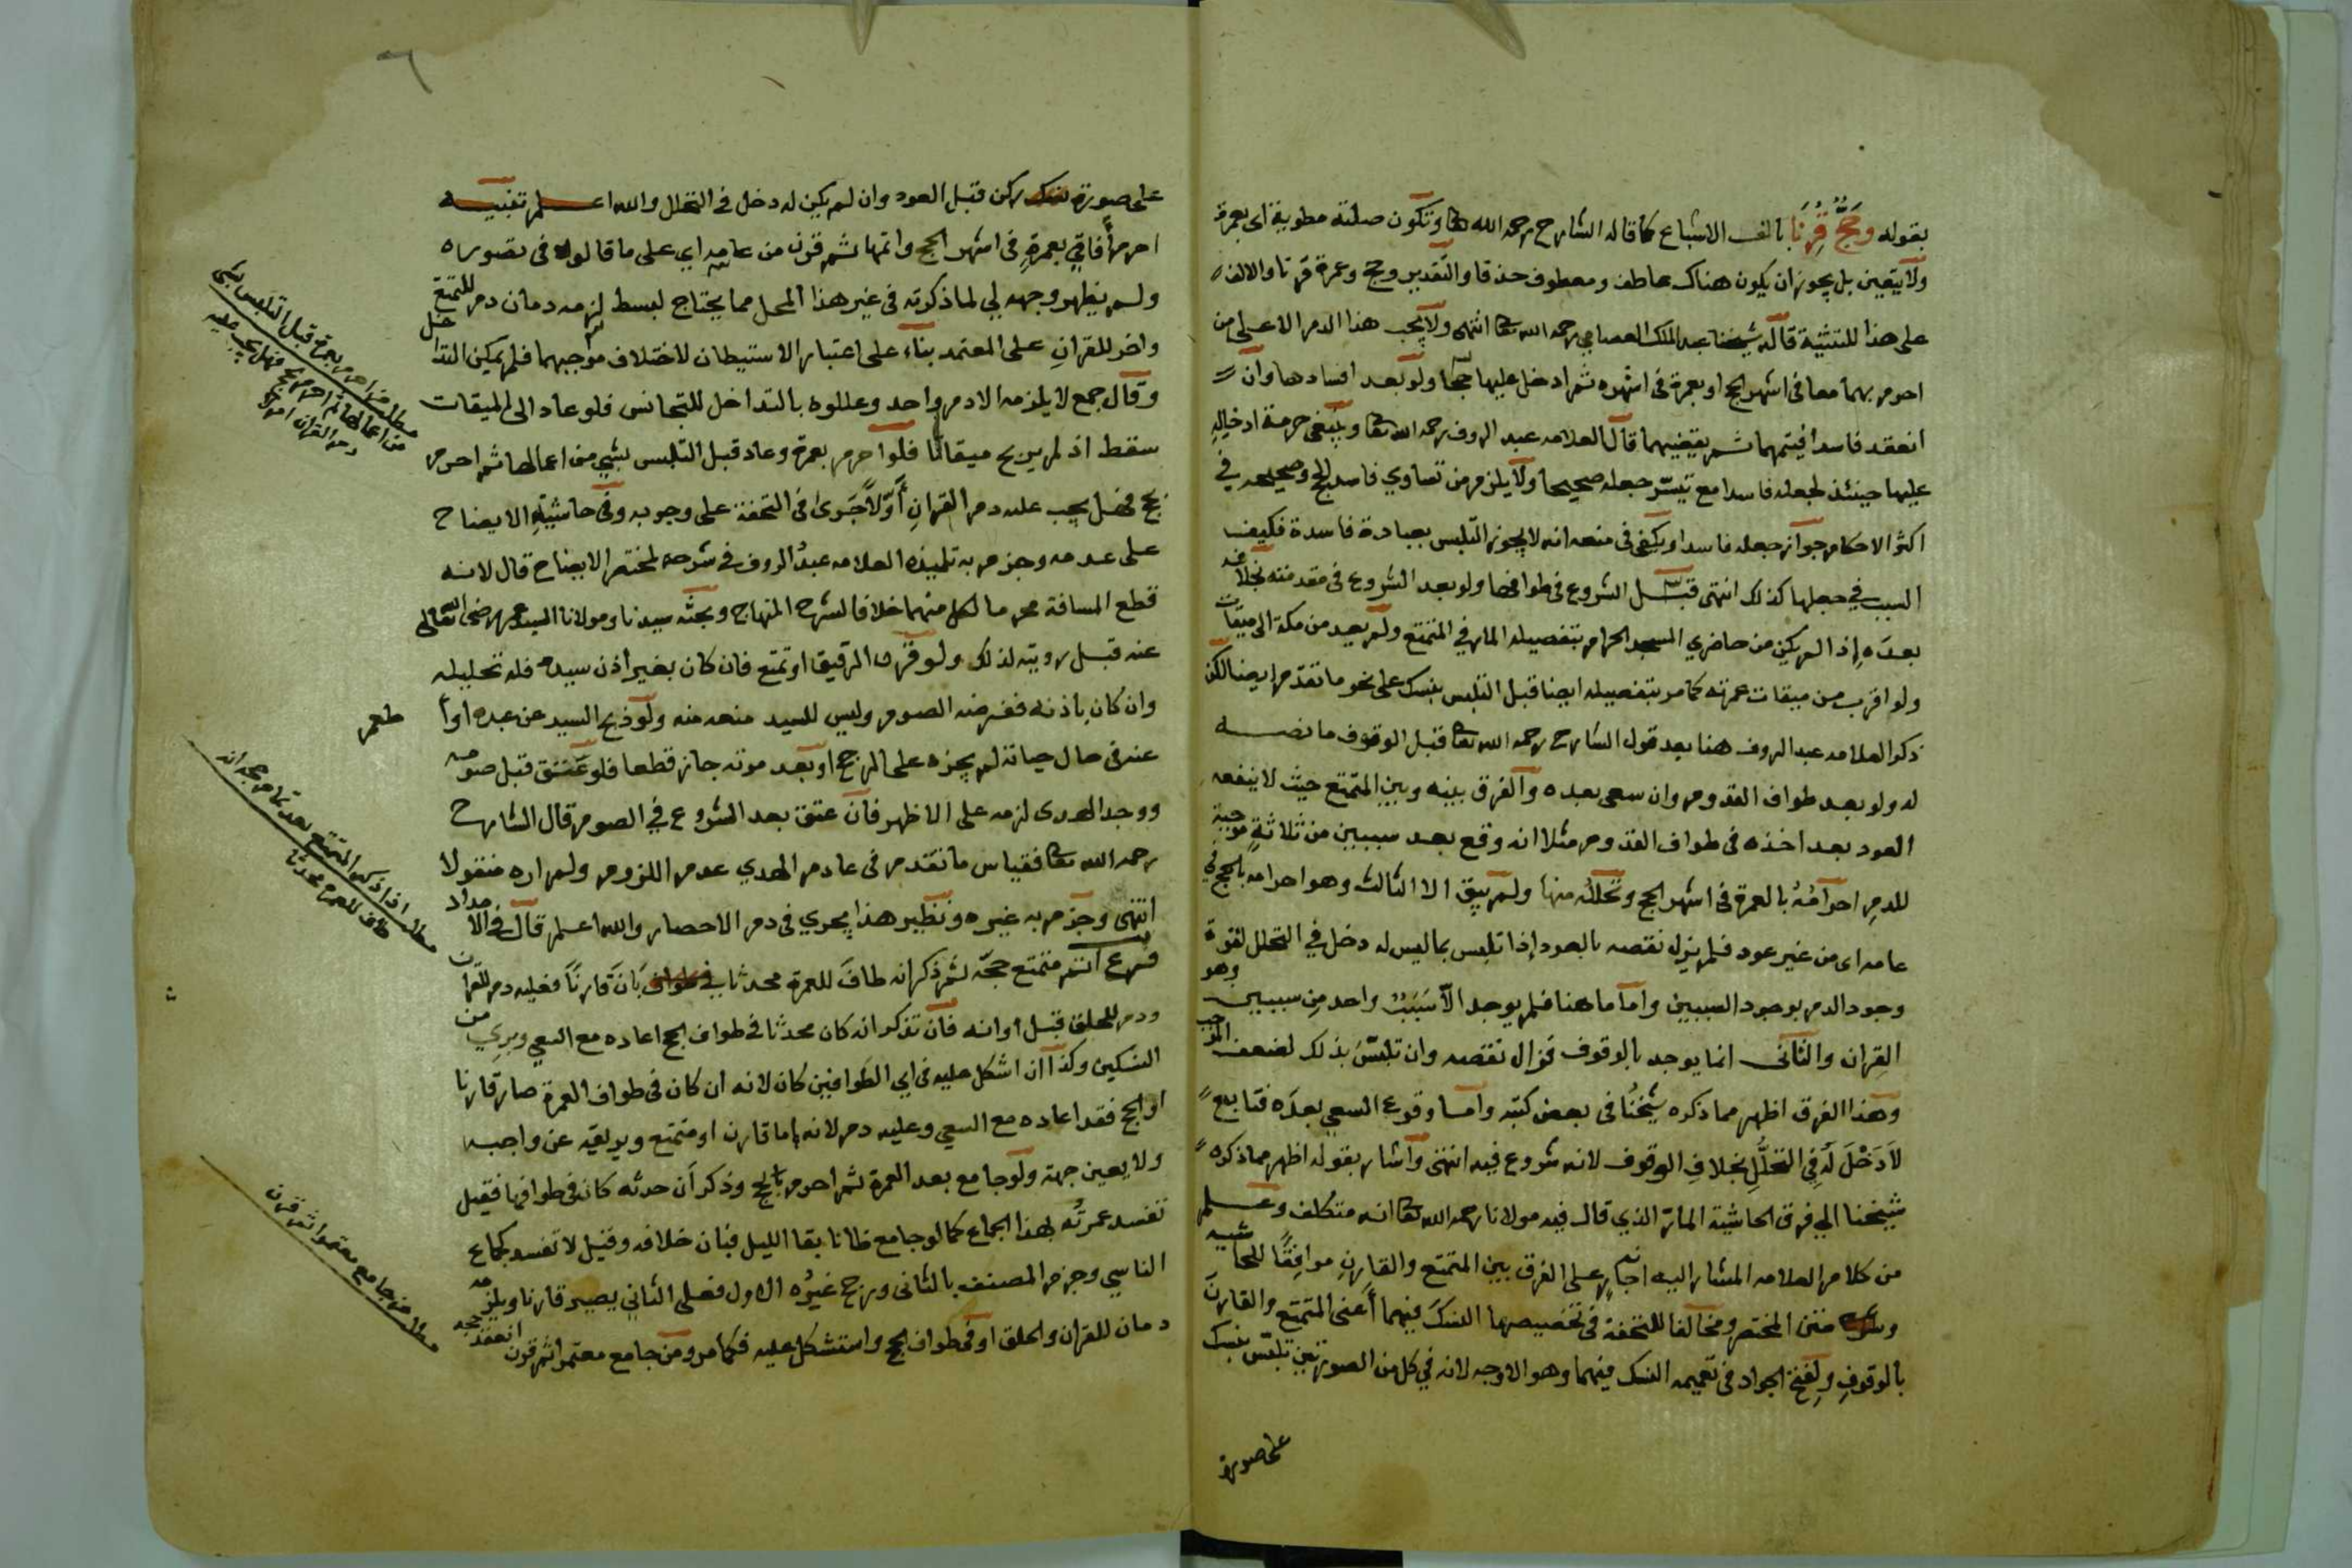 بقوله وَحَجٍّ قُرِنَا بالف الاشباع كما قاله الشارح رحمه الله تعا وتكون صلته مطوية اى بعمرة
ولا يتعين بل يجوز ان يكون هناك عاطف ومعطوف حذفا والتقدير وحج وعمرة قرنا والالف
على هذا للتثنية قاله شيخنا عبد الملك العصامي رحمه الله تعا انتهى ولا يجب هذا الدم الا على من
احرم بهما معا فى اشهر الحج او بعمرة فى اشهره ثم ادخل عليها حجا ولو بعد افسادها وان
انعقد فاسدا فيتمهما ثم يقضيهما قال العلامه عبد الروف رحمه الله تعا وينبغى حرمة ادخاله
عليها حينئذ لجعله فاسدا مع تيسّر جعله صحيحا ولا يلزم من تساوي فاسد الحج وصحيحه في
اكثر الاحكام جواز جعله فاسدا ويكفى فى منعه انه لا يجوز التلبس بعبادة فاسدة فكيف
السبب في جعلها كذلك انتهى قبل الشروع فى طوافها ولو بعد الشروع فى مقدمته بخلافه
بعدَه إذا لم يكن من حاضري المسجد الحرام بتفصيله المار في المتمتع ولم يعد من مكة الى ميقات
ولو اقرب من ميقات عمرته كما مر بتفصيله ايضا قبل التلبس بنسك على نحو ما تقدّم ايضا لكن
ذكر العلامه عبد الروف هنا بعد قول الشارح رحمه الله تعا قبل الوقوف ما نصه
له ولو بعد طواف القدوم وان سعى بعده والفرق بينه وبين المتمتع حيث لا ينفعه
العود بعد اخذه فى طواف القدوم مثلا انه وقع بعد سببين من ثلاثةٍ موجبة
للدمِ احرامُهُ بالعمرة فى اشهر الحج وتحلّله منها ولم يبق الا الثالث وهو احرامه بالحج في
عامه اى من غير عود فلم يزل نقصه بالعود إذا تلبس بما ليس له دخل في التحلل لقوة
وجود الدم بوجود السببين واما ما هنا فلم يوجد الّا سَبَبٌ واحد مِن سببين وهو
القِران والثانى انما يوجد بالوقوف فزال نقصه وان تلبّسَ بذلك لضعف الموجب
وهذا الفرق اظهر مما ذكره شيخُنا فى بعض كتبه واما وقوع السعي بعدَه فتابع
لَا دَخْلَ لَه في التحلُّلِ بخلافِ الوقوف لانه شروع فيه انتهى واشار بقوله اظهر مما ذكره
شيخنا الى فرق الحاشية المارّ الذي قال فيه مولانا رحمه الله تعا انه متكلف وعلم
من كلام العلامه المشار اليه انه جارٍ على الفرق بين المتمتع والقارِنِ موافِقًا للحاشيه
وشرحه متن المختصر ومخالفا للتحفة فى تخصيصها النسكَ فيهما أعنى المتمتع والقارنَ
بالوقوفِ ولِفتح الجواد فى تعميمه النسك فيهما وهو الاوجه لانه في كل من الصورتين تلبّس بنسك
على صورة
على صورة نسك ركن قبل العود وان لم يكن له دخل فى التحلل والله اعلم تنبيه
احرم آفاقي بعمرةٍ فى اشهر الحج واتمها ثم قرن من عامه اي على ما قالوه فى تصويره
ولم يظهر وجهه لي لما ذكرته فى غير هذا المحل مما يحتاج لبسط لزمه دمان دم للتمتع
واخر للقرانِ على المعتمد بناء على اعتبار الاستيطان لاختلاف موجبهما فلم يمكن التداخل
وقال جمع لا يلزمه الا دم واحد وعللوه بالتداخل للتجانس فلو عاد الى الميقات
سقط اذ لم يربح ميقاتا فلو احرم بعمرة وعاد قبل التلبس بشي من اعمالها ثم احرم
بحج فهل يجب عليه دم القرانِ أوّلاً جَرَى فى التحفة على وجوبه وفى حاشيةِ الايضاح
على عدمه وجزم به تلميذه العلامه عبدُ الروف في شرحه لمختصر الايضاح قال لانه
قطع المسافة محرما لكل منهما خلافا لشرح المنهاج وبحثه سيدنا ومولانا السيد عمر رضى الله تعالى
عنه قبل رويته لذلك ولو قرن الرقيق او تمتع فان كان بغير اذن سيده فله تحليله
وان كان باذنه ففرضه الصوم وليس للسيد منعه منه ولو ذبح السيد عن عبده او أطعم
عنه فى حال حياته لم يجزه على المرجح او بعد موته جاز قطعا فلو عَتَق قبل صومه
ووجد الهدى لزمه على الاظهر فان عتق بعد الشروع في الصوم قال الشارح
رحمه الله تعا فقياس ما تقدم فى عادم الهدي عدم اللزوم ولم اره منقولا
انتهى وجزم به غيره ونظير هذا يجري فى دم الاحصار والله اعلم قال في الامداد
فرع اتمّ متمتع حجّه ثم ذكر انه طافَ للعمرة محدثا بَانَ قَارِنًا فعليه دم للقران
ودم للحلق قبل اوانه فان تذكر انه كان محدثا فى طواف الحج اعاده مع السعي وبرِي من
النسكين وكذا ان اشكل عليه فى اي الطوافين كان لانه ان كان فى طواف العمرة صار قارنا
او الحج فقد اعاده مع السعي وعليه دم لانه اما قارن او متمتع ويريقه عن واجبه
ولا يعين جهة ولو جامع بعد العمرة ثم احرم بالحج وذكر أن حدثه كان فى طوافها فقيل
تفسد عمرتُه بهذا الجماع كما لو جامع ظانا بقا الليل فبان خلافه وقيل لا تفسد كجماع
الناسي وجزم المصنف بالثانى ورجح غيرُه الاول فعلى الثاني يصير قارنا ويلزمه
دمان للقران والحلق او فى طواف الحج واستشكل عليه فكما مر ومن جامع معتمرا ثم قرن انعقد حجه
مطلب من احرم بعمرة قبل التلبس بشي
من اعمالها ثم احرم بحج فهل يجب عليه
دم القران ام لا
مطلب اذا ذكر المتمتع بعد تمام حجه انه
طاف للعمرة محدثا
مطلب من جامع معتمرا ثم قرن